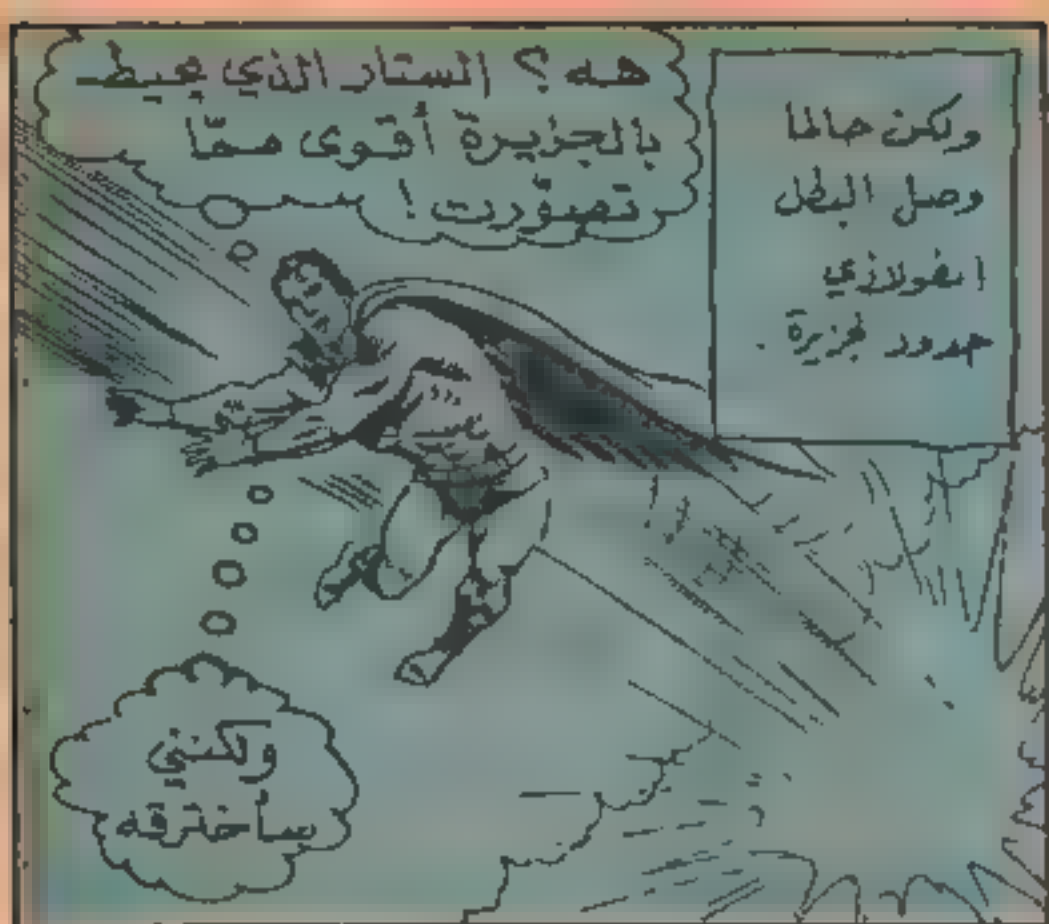 ولكن حالما
وصل البطل
الفولاذي
حدود الجزيرة .
هه ؟ الستار الذي يحيط
بالجزيرة أقوى ممّا
تصوّرت !
ولكنني
سأخترقه